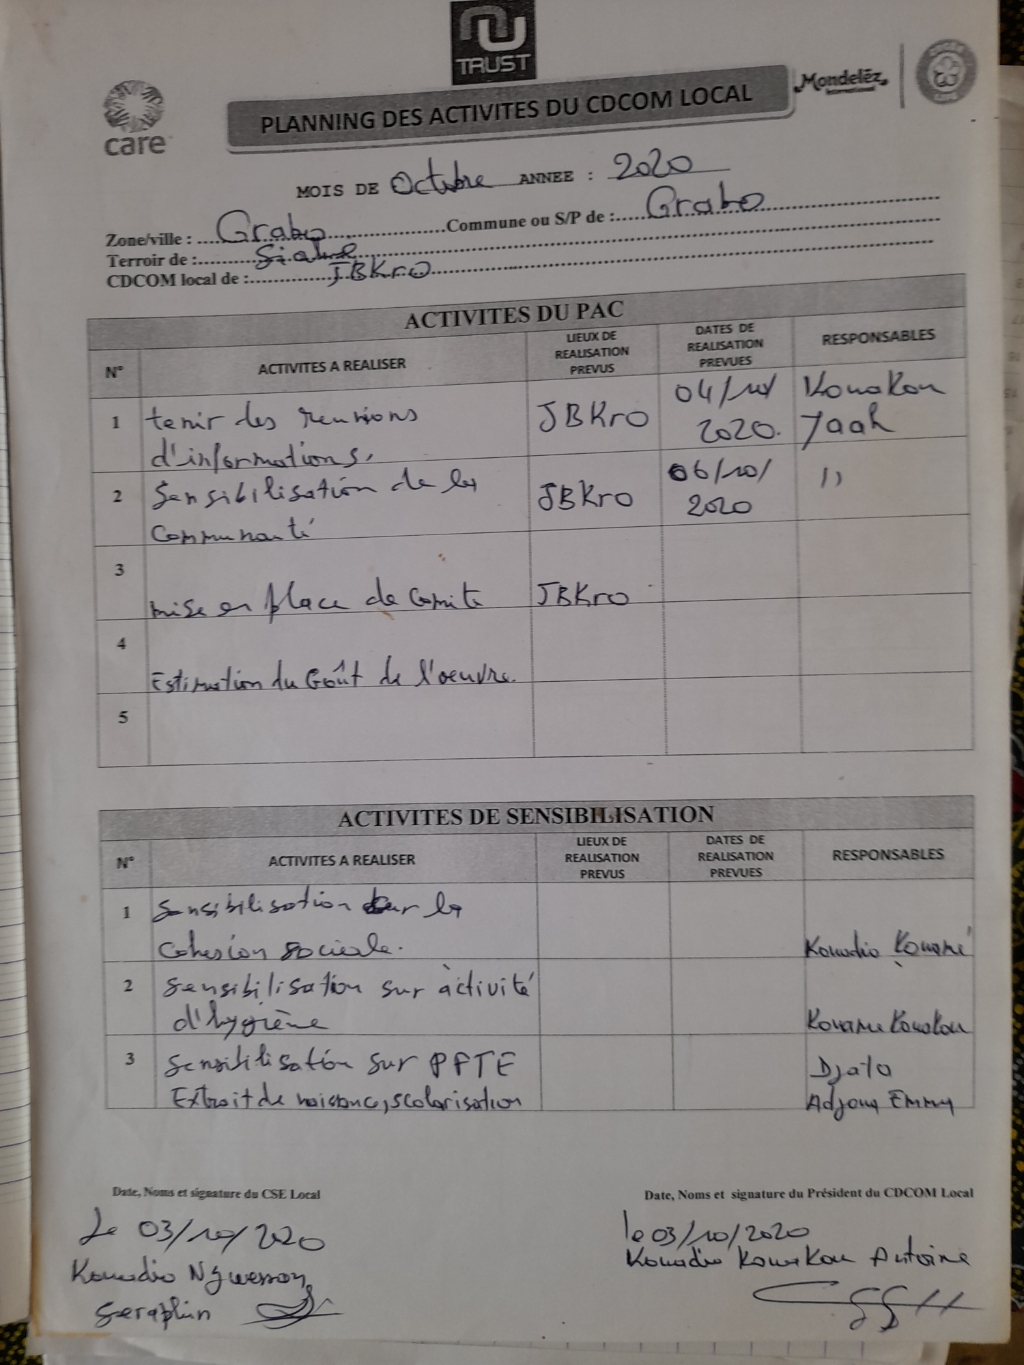 NU
TRUST
care
Mondelēz
International
PLANNING DES ACTIVITES DU CDCOM LOCAL
MOIS DE Octobre ANNEE : 2020
Zone/ville : Grabo Commune ou S/P de : Grabo
Terroir de :
CDCOM local de : JBKro
ACTIVITES DU PAC
N° ACTIVITES A REALISER LIEUX DE REALISATION PREVUS DATES DE REALISATION PREVUES RESPONSABLES
1 tenir des reunions d'informations. JBKro 04/10/2020. Kouakou
2 Sensibilisation de la Communauté JBKro 06/10/2020 "
3 mise en place de Comité JBKro
4 Estimation du Coût de l'oeuvre.
5
ACTIVITES DE SENSIBILISATION
N° ACTIVITES A REALISER LIEUX DE REALISATION PREVUS DATES DE REALISATION PREVUES RESPONSABLES
1 Sensibilisation sur la Cohesion sociale. Kouadio Kouamé
2 Sensibilisation sur activité d'hygiène Kouame Kouakou
3 Sensibilisation sur PFTE Extrait de naissance, scolarisation Adjoua Emmy
Date, Noms et signature du CSE Local
Date, Noms et signature du Président du CDCOM Local
Le 03/10/2020
le 03/10/2020
Kouadio N'guessan
Kouadio Kouakou Antoine
Seraphin